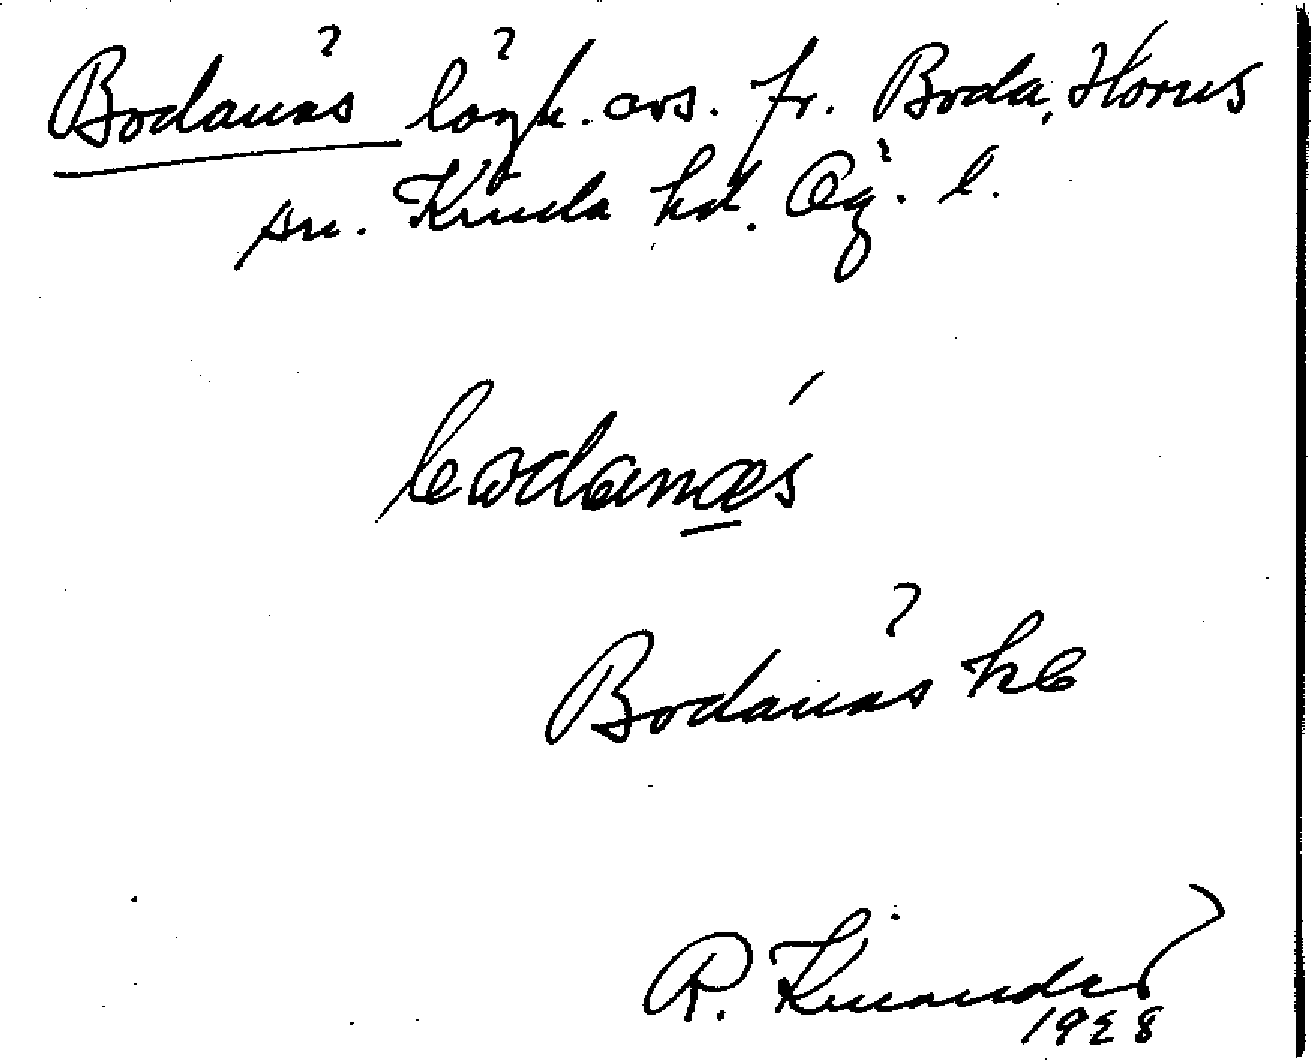 Bodanäs lägh. avs. fr. Boda, Horns
sn. Kinda hd. Ög. l.
bodanæs
Bodanäs kb
R. Kinander
1928